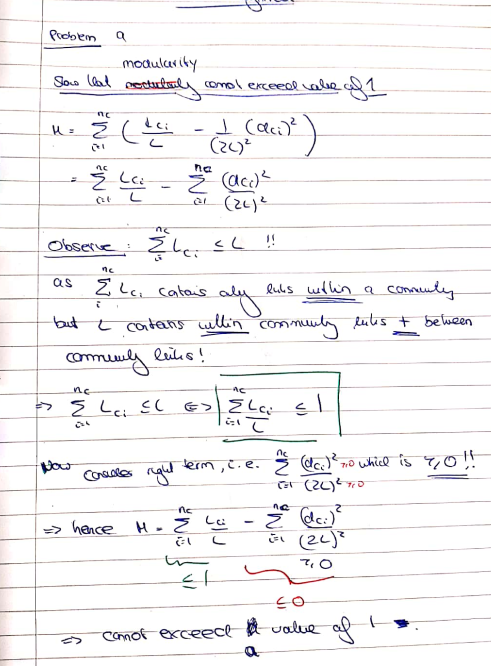 Problem a
modularity
Show that modularity cannot exceed value of 1
M = Σ_{i=1}^{nc} ( L_{ci} / L - 1/(2L)² (d_{ci})² )
= Σ_{i=1}^{nc} L_{ci} / L - Σ_{i=1}^{nc} (d_{ci})² / (2L)²
Observe : Σ_{i}^{nc} L_{ci} ≤ L !!
as Σ_{i}^{nc} L_{ci} contains only links within a community
but L contains within community links + between
community links!
=> Σ_{i=1}^{nc} L_{ci} ≤ L <=> Σ_{i=1}^{nc} L_{ci} / L ≤ 1
Now consider right term, i.e. Σ_{i=1}^{nc} (d_{ci})² ≥0 / (2L)² ≥0 which is ≥0!!
=> hence M = Σ_{i=1}^{nc} L_{ci} / L - Σ_{i=1}^{nc} (d_{ci})² / (2L)²
≥0
≤1
≤0
=> cannot exceed a value of 1